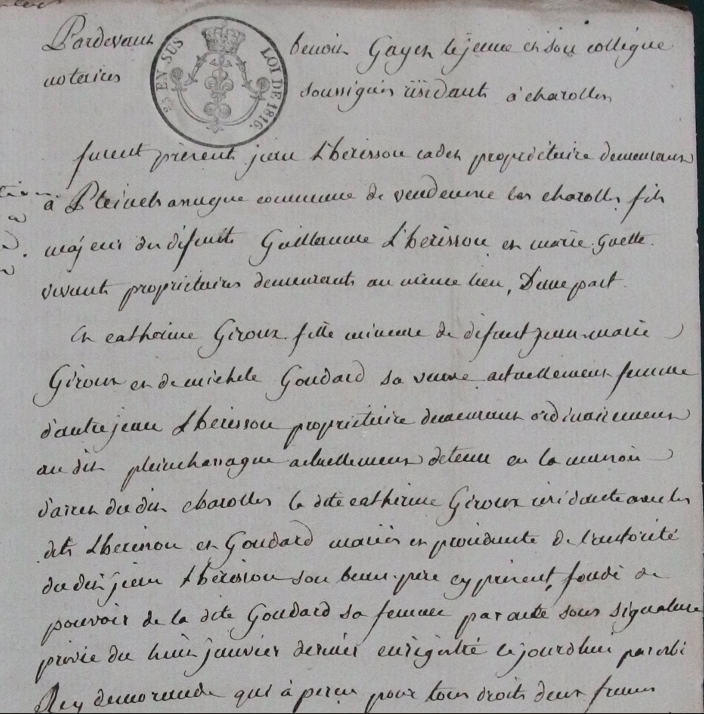 Pardevant benoit Gayet lejeune et son collégue
notaires soussignés résidants à charolles
EN SUS LOI DE 1816.
furent présent jean Lhérisson cadet propriétaire demeurant
à commune de vendenesse les charolles fils
majeur des défunts Guillaume Lherisson et marie
vivants propriétaires demeurants au même lieu, D'une part.
Et catherine Giroux fille mineure de défunt jean-marie
Giroux et de michele Goudard sa veuve actuellement femme
d'autre jean Lherisson propriétaire demeurant ordinairement
au dit actuellement détenu en la maison
d'arret du dit charolles la dite catherine Giroux résidante avec les
dits Lherisson et Goudard mariés et procédante de l'autorité
du dit jean Lherisson son beau-père cy présent, fondé de
pouvoir de la dite Goudard sa femme par acte sous signature
privée du huit janvier dernier enrégistré cejourd'hui par
Rey qui à perçu pour tous droits deux francs